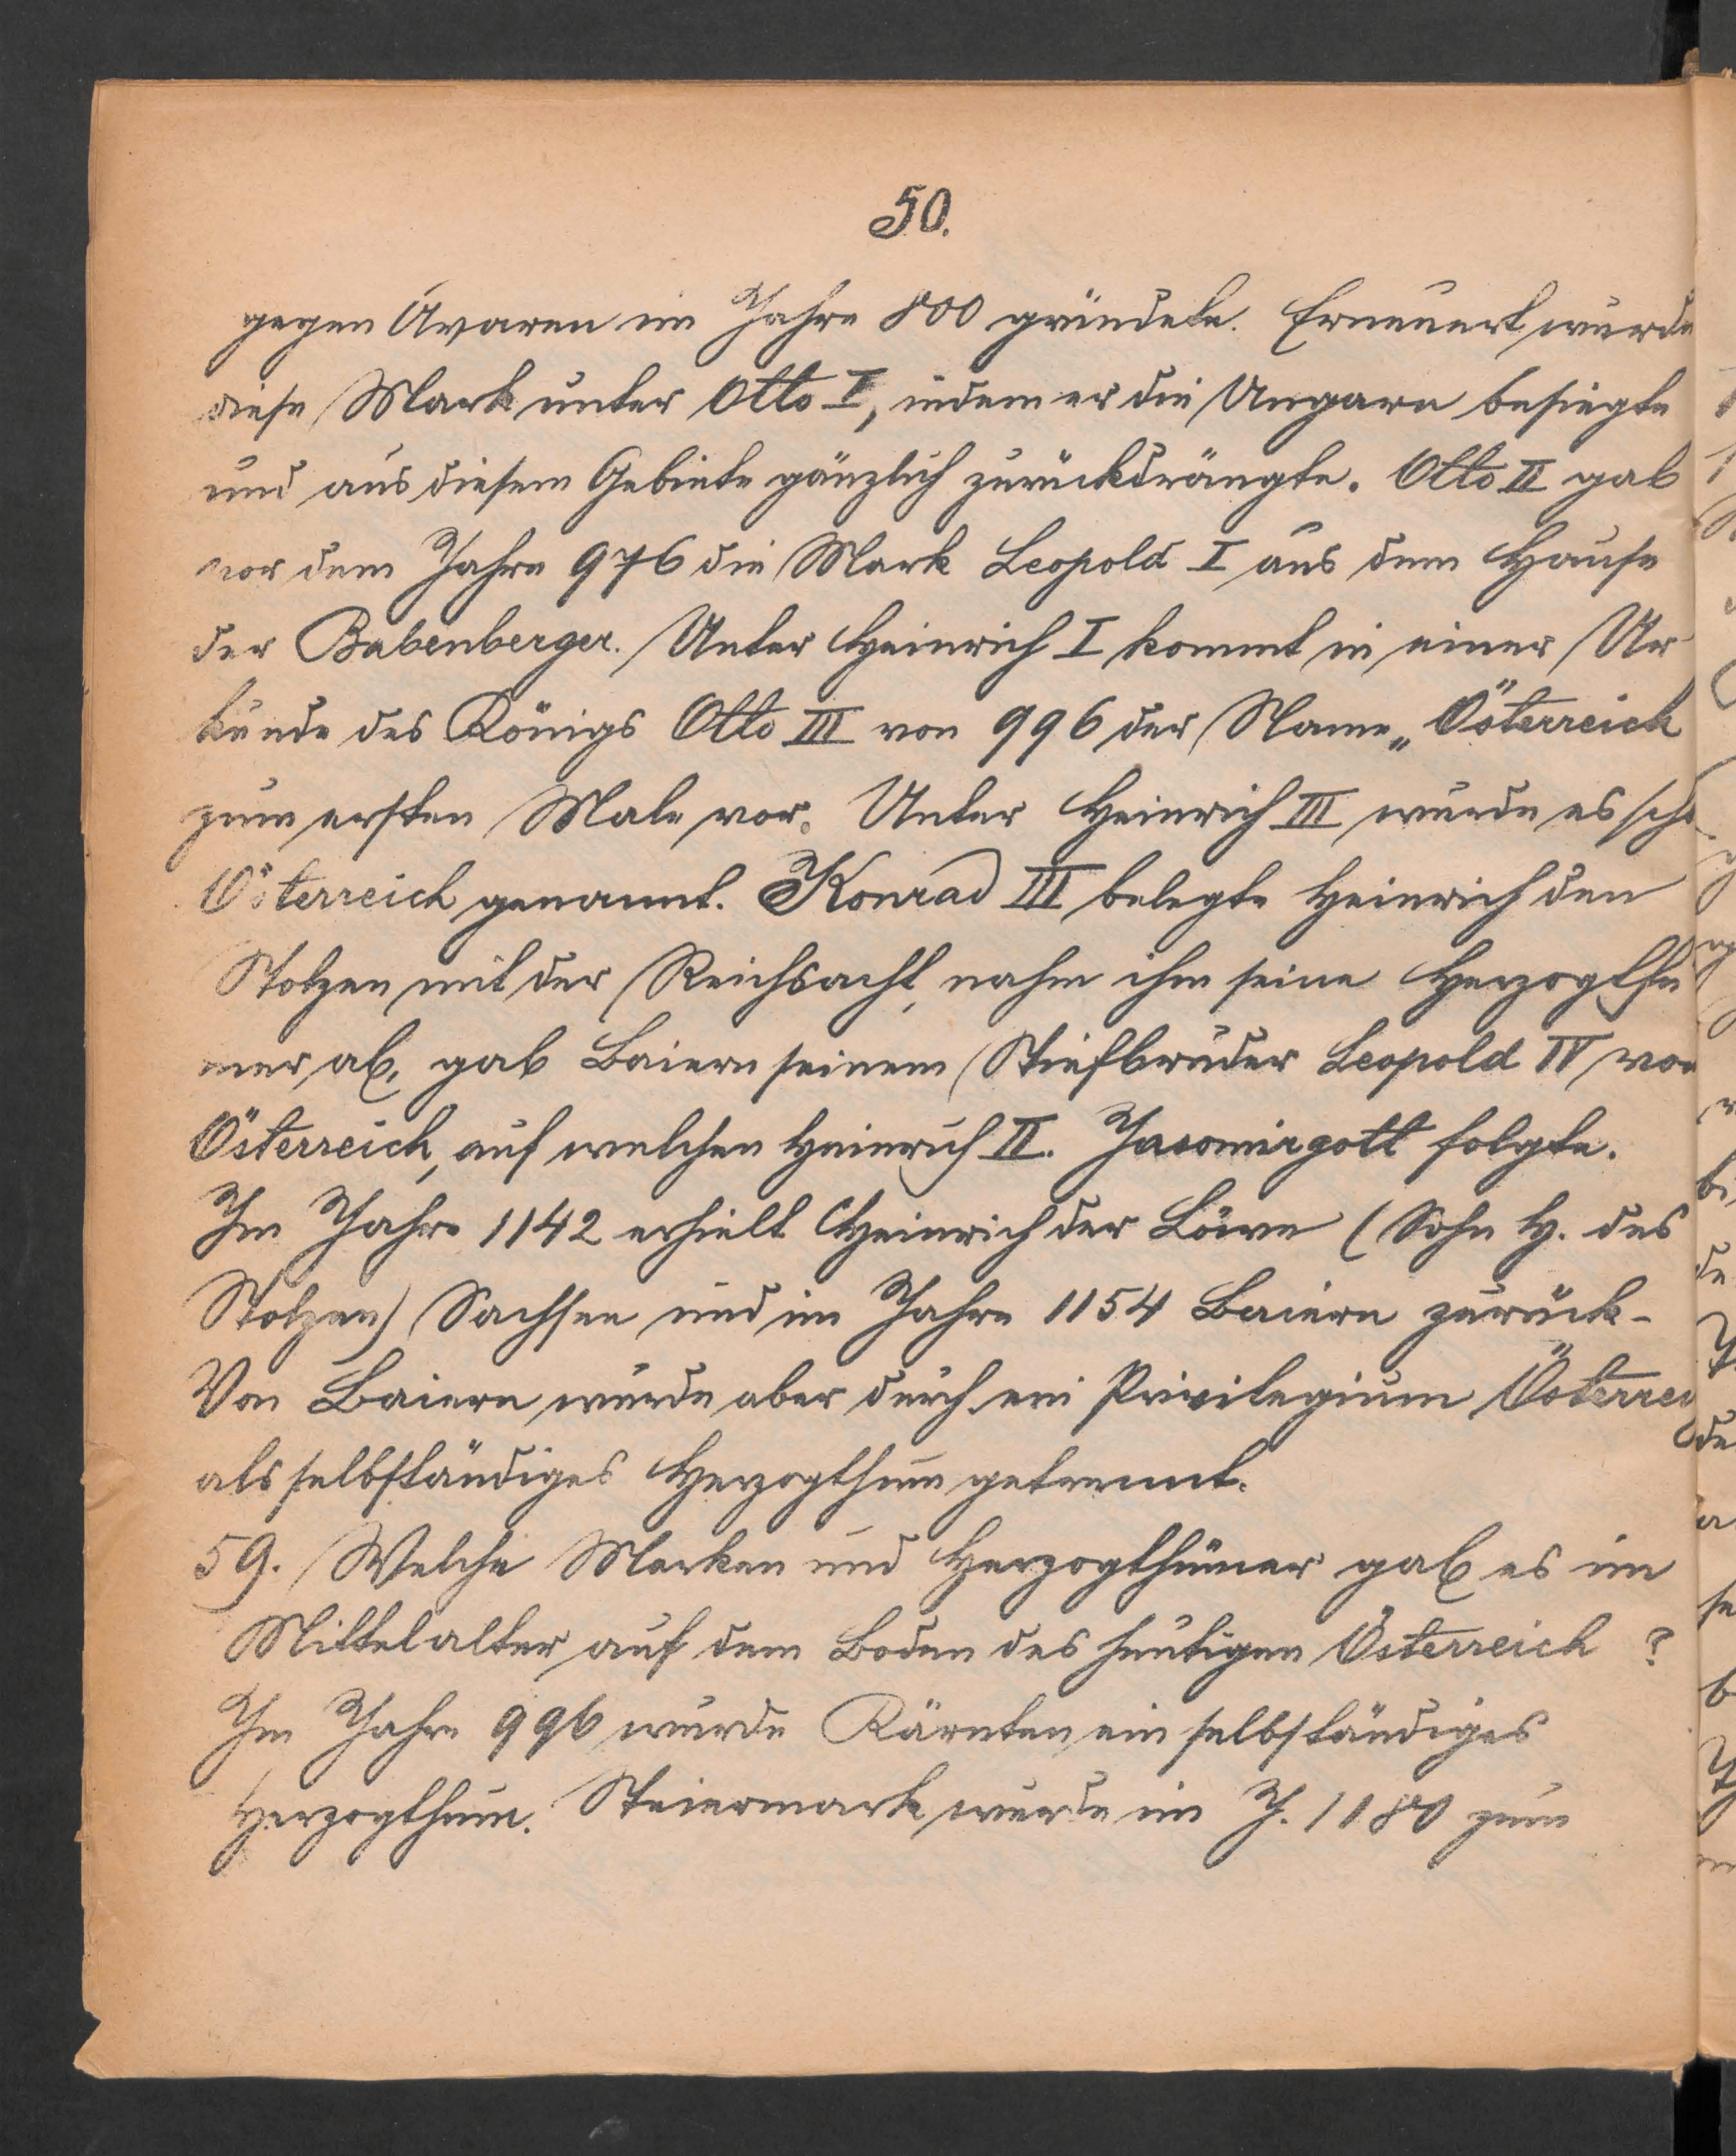 50.
gegen Avaren im Jahre 800 gründete. Erneuert wurde
diese Mark unter Otto I, indem er die Ungarn besiegte
und aus diesem Gebiete gänzlich zurückdrängte. Otto II gab
vor dem Jahre 976 die Mark Leopold I aus dem Hause
der Babenberger. Unter Heinrich I kommt in einer Ur
kunde des Königs Otto III von 996 der Name „Österreich
zum ersten Male vor. Unter Heinrich III wurde es scho
Österreich genannt. Konrad III belegte Heinrich den
Stolzen mit der Reichsacht, nahm ihm seine Herzogthü
mer ab, gab Baiern seinem Stiefbruder Leopold IV von
Österreich, auf welchen Heinrich II. Jasomirgott folgte.
Im Jahre 1142 erhielt Heinrich der Löwe (Sohn H. des
Stolzen) Sachsen und im Jahre 1154 Baiern zurück-
Von Baiern wurde aber durch ein Privilegium Österrei
als selbständiges Herzogthum getrennt.
59. Welche Marken und Herzogthümer gab es im
Mittelalter auf dem Boden des heutigen Österreich ?
Im Jahre 996 wurde Kärnten ein selbständiges
Herzogthum. Steiermark wurde im J. 1180 zum